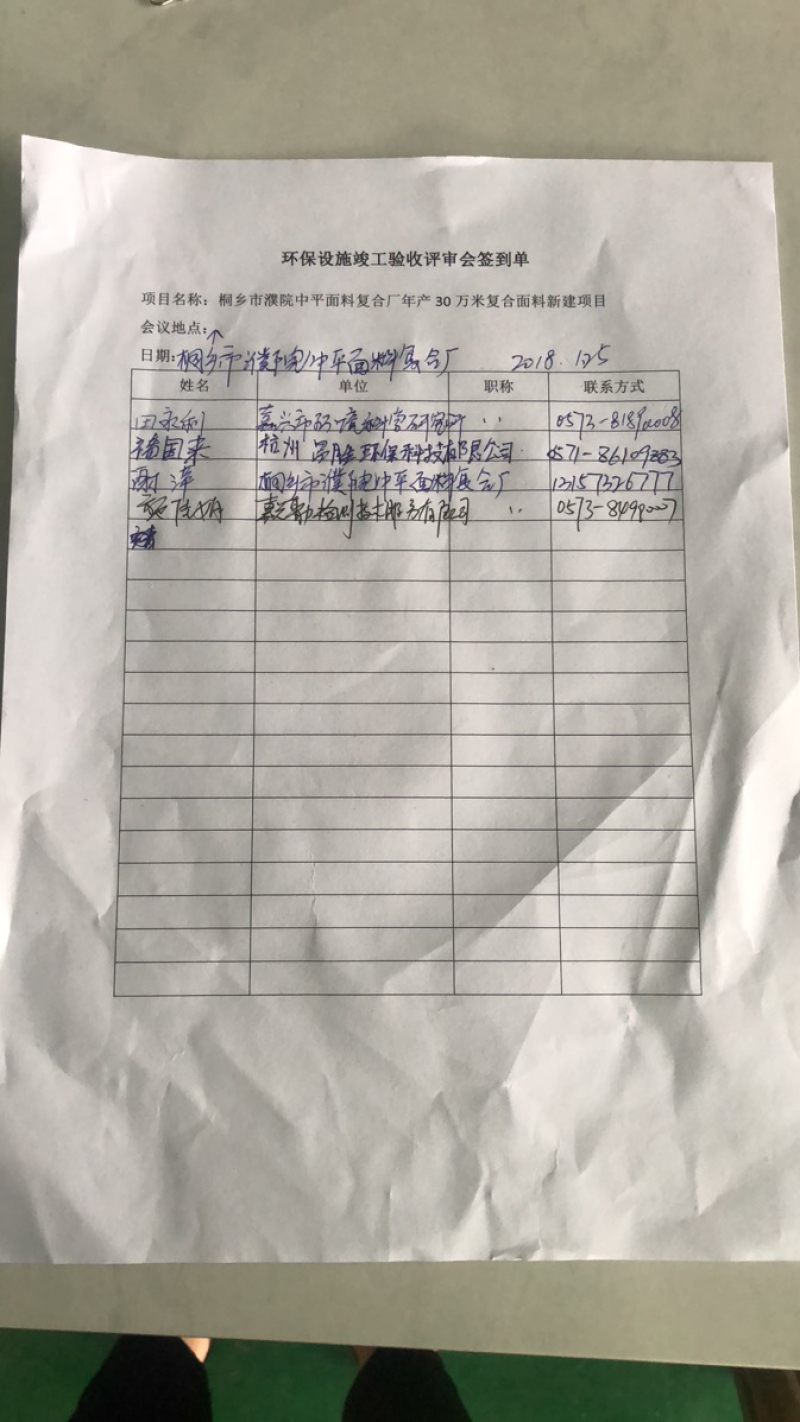 环保设施竣工验收评审会签到单
项目名称：桐乡市濮院中平面料复合厂年产30万米复合面料新建项目
会议地点：
日期：桐乡市濮院中平面料复合厂 2018.12.5
姓名 单位 职称 联系方式
田永利 嘉兴市环境科学研究所
国来 杭州 环保科技有限公司 0571-86109883
谢萍 桐乡市濮院中平面料复合厂
嘉兴 检测技术服务有限公司